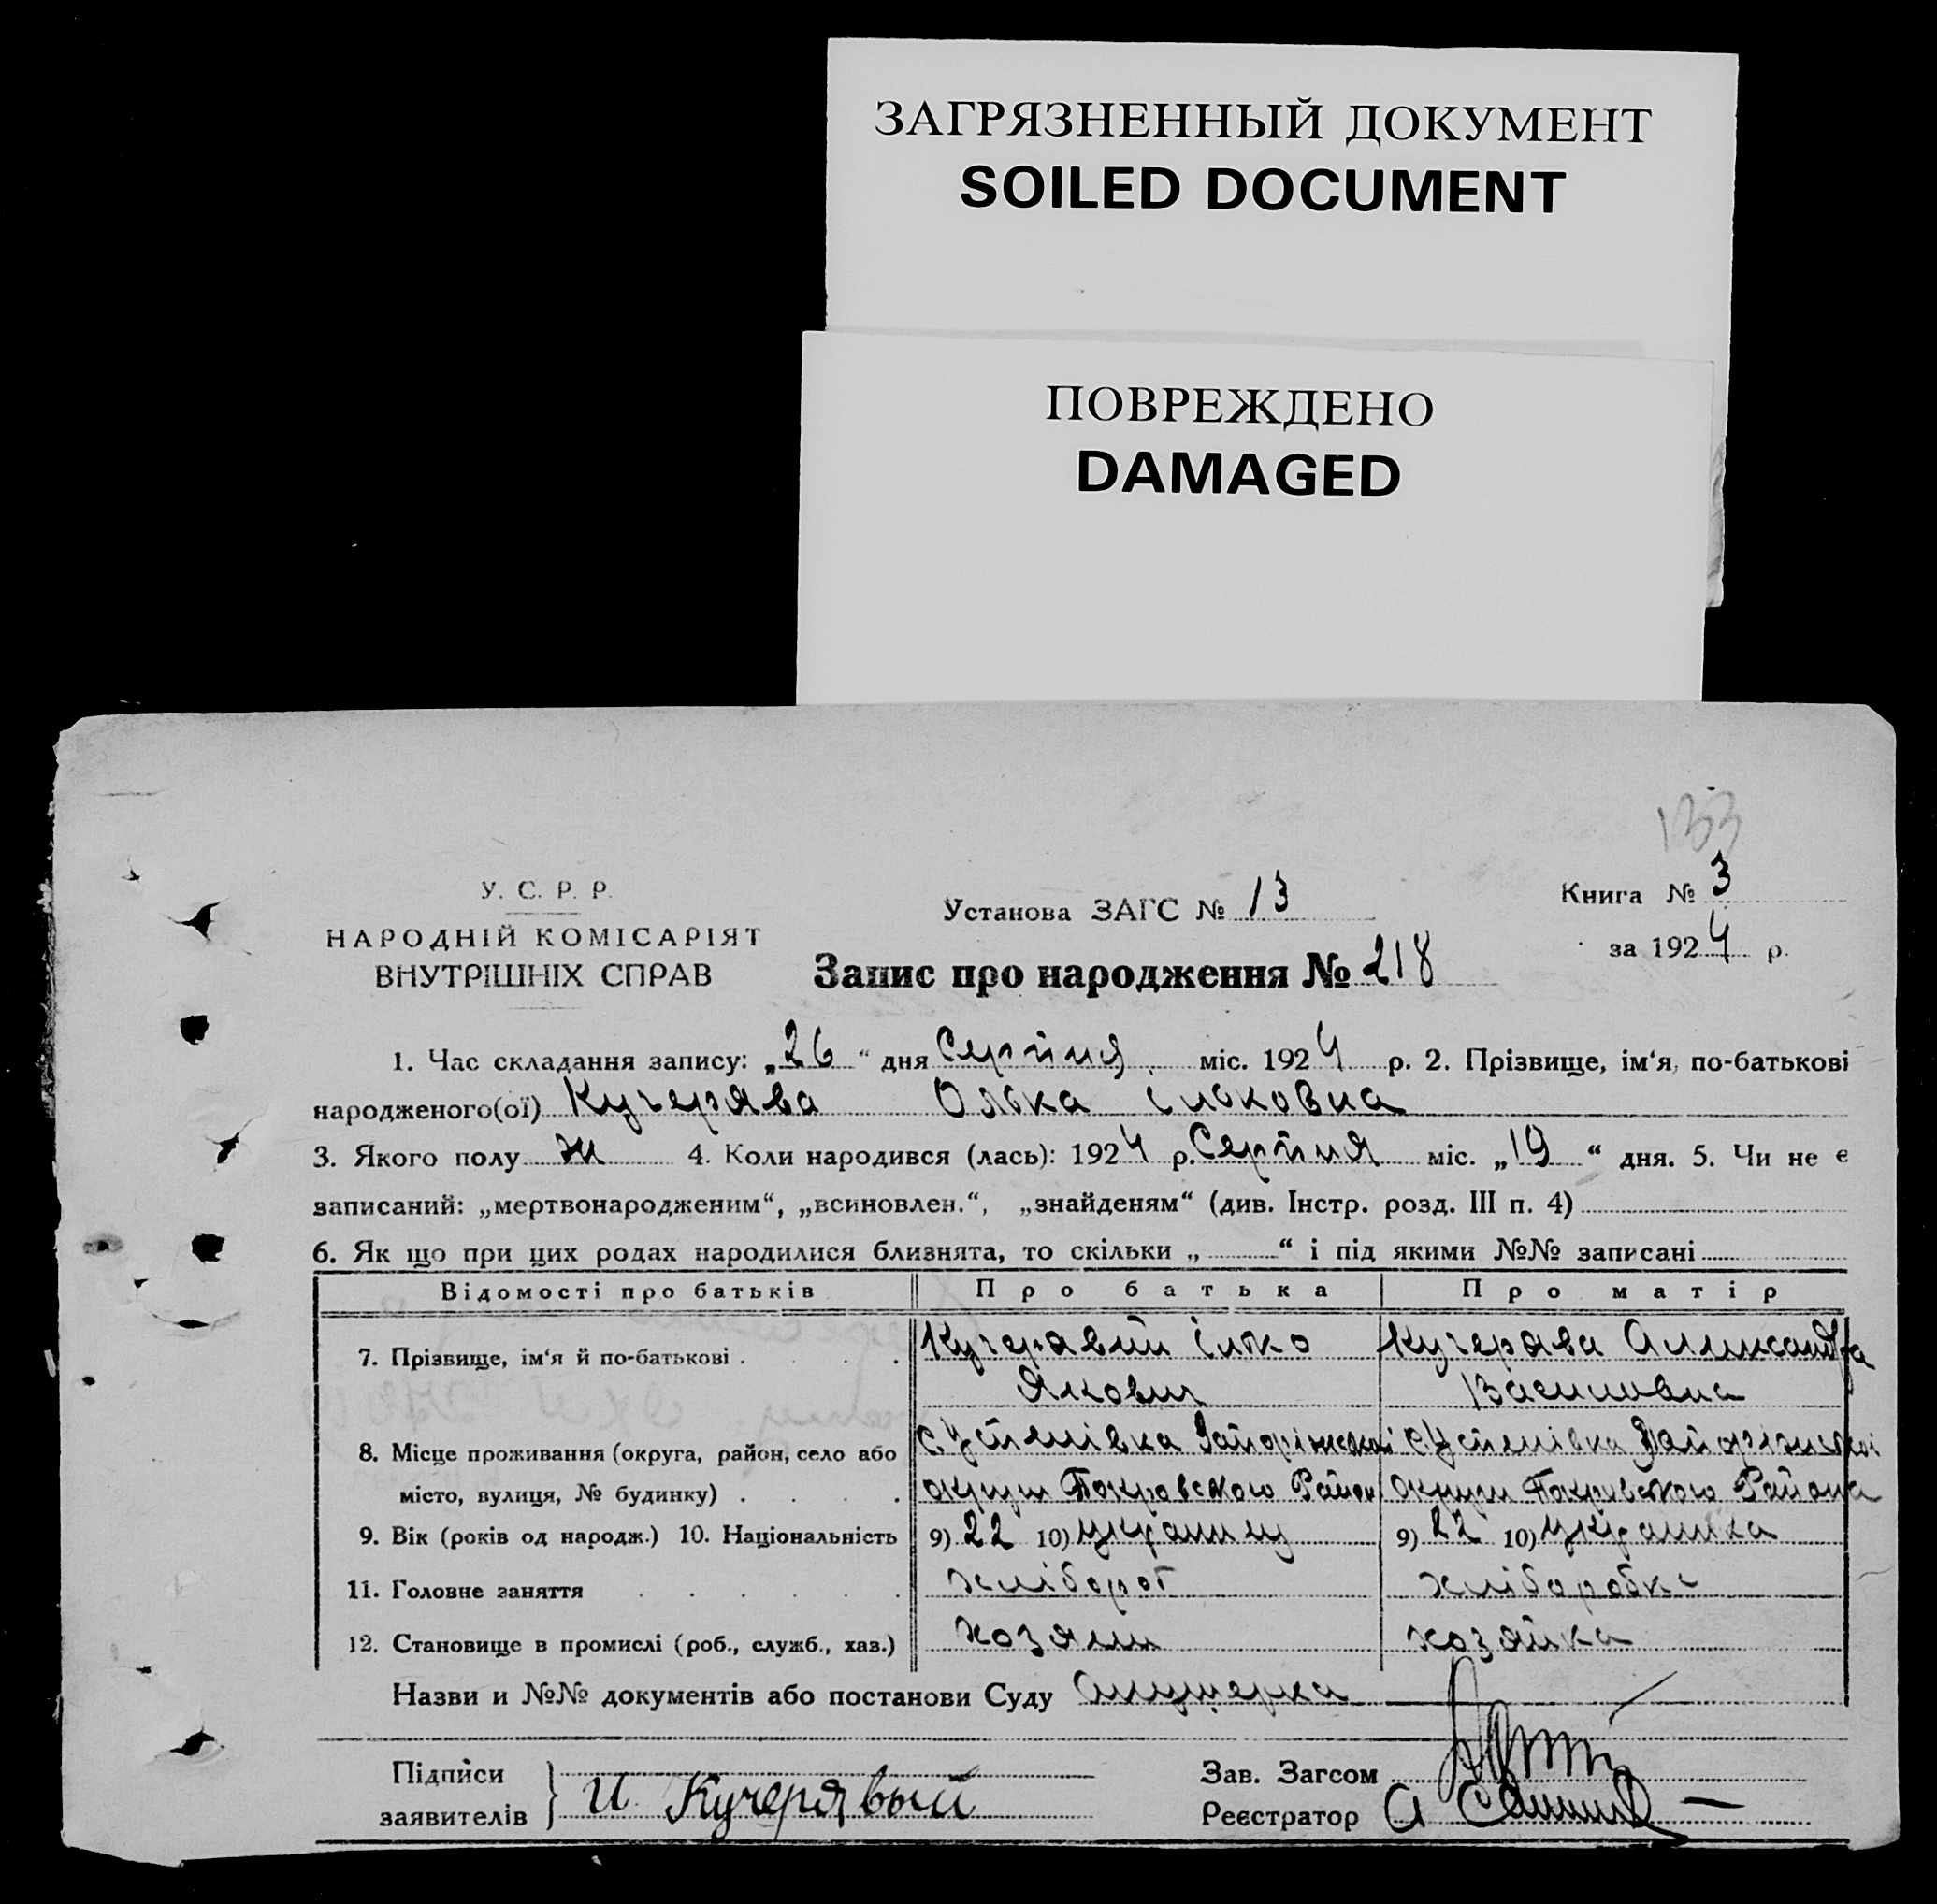 ЗАГРЯЗНЕННЫЙ ДОКУМЕНТ
SOILED DOCUMENT
ПОВРЕЖДЕНО
DAMAGED
133
У. С. Р. Р.
НАРОДНІЙ КОМІСАРІЯТ
ВНУТРІШНІХ СПРАВ
Установа ЗАГС № 13
Книга № 3
за 1924 р.
Запис про народження № 218
1. Час складання запису: „26“ дня Серпня міс. 1924 р. 2. Прізвище, ім'я, по-батькові
народженого(ої) Кучерява Олька Ільковна
3. Якого полу ж 4. Коли народився (лась): 1924 р. Серпня міс. „19“ дня. 5. Чи не є
записаний: „мертвонародженим“, „всиновлен.“, „знайденям“ (див. Інстр. розд. III п. 4)
6. Як що при цих родах народилися близнята, то скільки „ “ і під якими №№ записані
Відомості про батьків Про батька Про матір
7. Прізвище, ім'я й по-батькові Кучерявий Ілько Кучерява Александра
Якович Василивна
8. Місце проживання (округа, район, село або с. Устенівка Запоріжской с. Устенівка Запоріжской
місто, вулиця, № будинку) округи Покровського Район округи Покровського Района
9. Вік (років од народж.) 10. Національність 9) 22 10) украинец 9) 22 10) украинка
11. Головне заняття хлібороб хліборобка
12. Становище в промислі (роб., служб., хаз.) хозяин хозяйка
Назви и №№ документів або постанови Суду Акушерка
Підписи
заявителів И Кучерявый
Зав. Загсом
Реєстратор